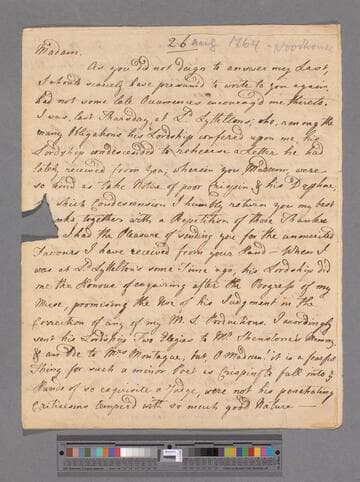 26 aug 1764 - Woodhouse
Madam.
As you did not deign to answer my Last,
I shou'd scarcely have presum'd to write to you again,
had not some late Occurrences encourag'd me thereto.
I was, last Thursday, at Ld. Lyttelton's, who, among the
many Obligations his Lordship confered upon me, his
Lordship condescended to rehearse a Letter he had
lately received from you, wherein you Madam, were
so kind as take Notice of poor Crispin & his Daphne,
which Condescension I humbly return you my best
together with a Repetition of those Thanks
I had the Pleasure of sending you for the unmerited
Favours I have received from your Hand — When I
was at Ld. Lyttelton's some Time ago, his Lordship did
me the Honour of enquiring after the Progress of my
Muse, promising the Use of his Judgment in the
Correction of any of my M. S. Productions. I accordingly
sent his Lordship Two Elegies to Mr Shenstone's Memory,
& an Ode to Mrs Montague, but, O Madam! it is a fearful
Thing for such a minor Poet as Crispin to fall into ye
Hands of so exquisite a Judge, were not his penetrating
Criticisms temper'd with so much good Nature —